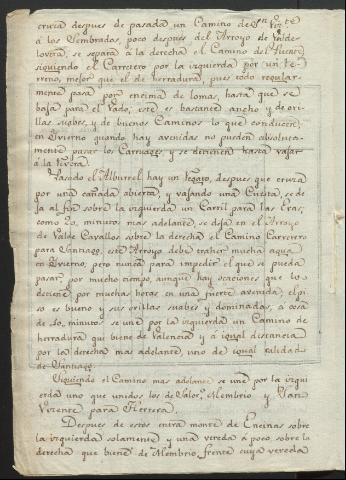 cruza despues de pasada un Camino de Sn Vizte
á los Sembrados, poco después del Arroyo de Valde-
lovera, se separa á la derecha el Camino del Puente
siguiendo el Carretero por la izquierda por un te-
rreno, mejor que el de herradura, pues todo regular-
mente pasa por encima de lomas, hasta que se
baja para el Vado, este es bastante ancho y de ori-
llas suabes, y de buenos Caminos lo que conducen,
en Ivierno quando hay avenidas no pueden absoluta-
mente pasar los Carruages y se detienen hasta vajar
á la Rivera.
Pasado el Alburrel hay un Repazo, despues que cruza
por una cañada abierta, y vajando una Cuesta, se de-
ja al fin sobre la izquierda un Carril para las Eras;
como 20, minutos mas adelante, se deja en el Arroyo
de Valde Cavallos sobre la derecha el Camino Carretero
para Santiago, este Arroyo debe traher mucha agua
en Ivierno, pero nunca para impedir el que se pueda
pasar por mucho tiempo, aunque hay ocaciones que lo
detiene por muchas horas en una fuerte avenida, el pi-
so es bueno y sus orillas suabes y dominadas, á cosa
de 20, minutos se une por la izquierda un Camino de
herradura qui biene de Valencia y á igual distancia
por la derecha mas adelante, uno de igual calidad
de Santiago.
Siguiendo el Camino mas adelante se une por la izqui-
erda uno que unidos los de Valor.ª Membrio y San
Vizente para Herrera.
Despues de estos entra monte de Encinas sobre
la izquierda solamente y una vereda á poco sobre la
derecha que biene de Membrio, frente cuya vereda